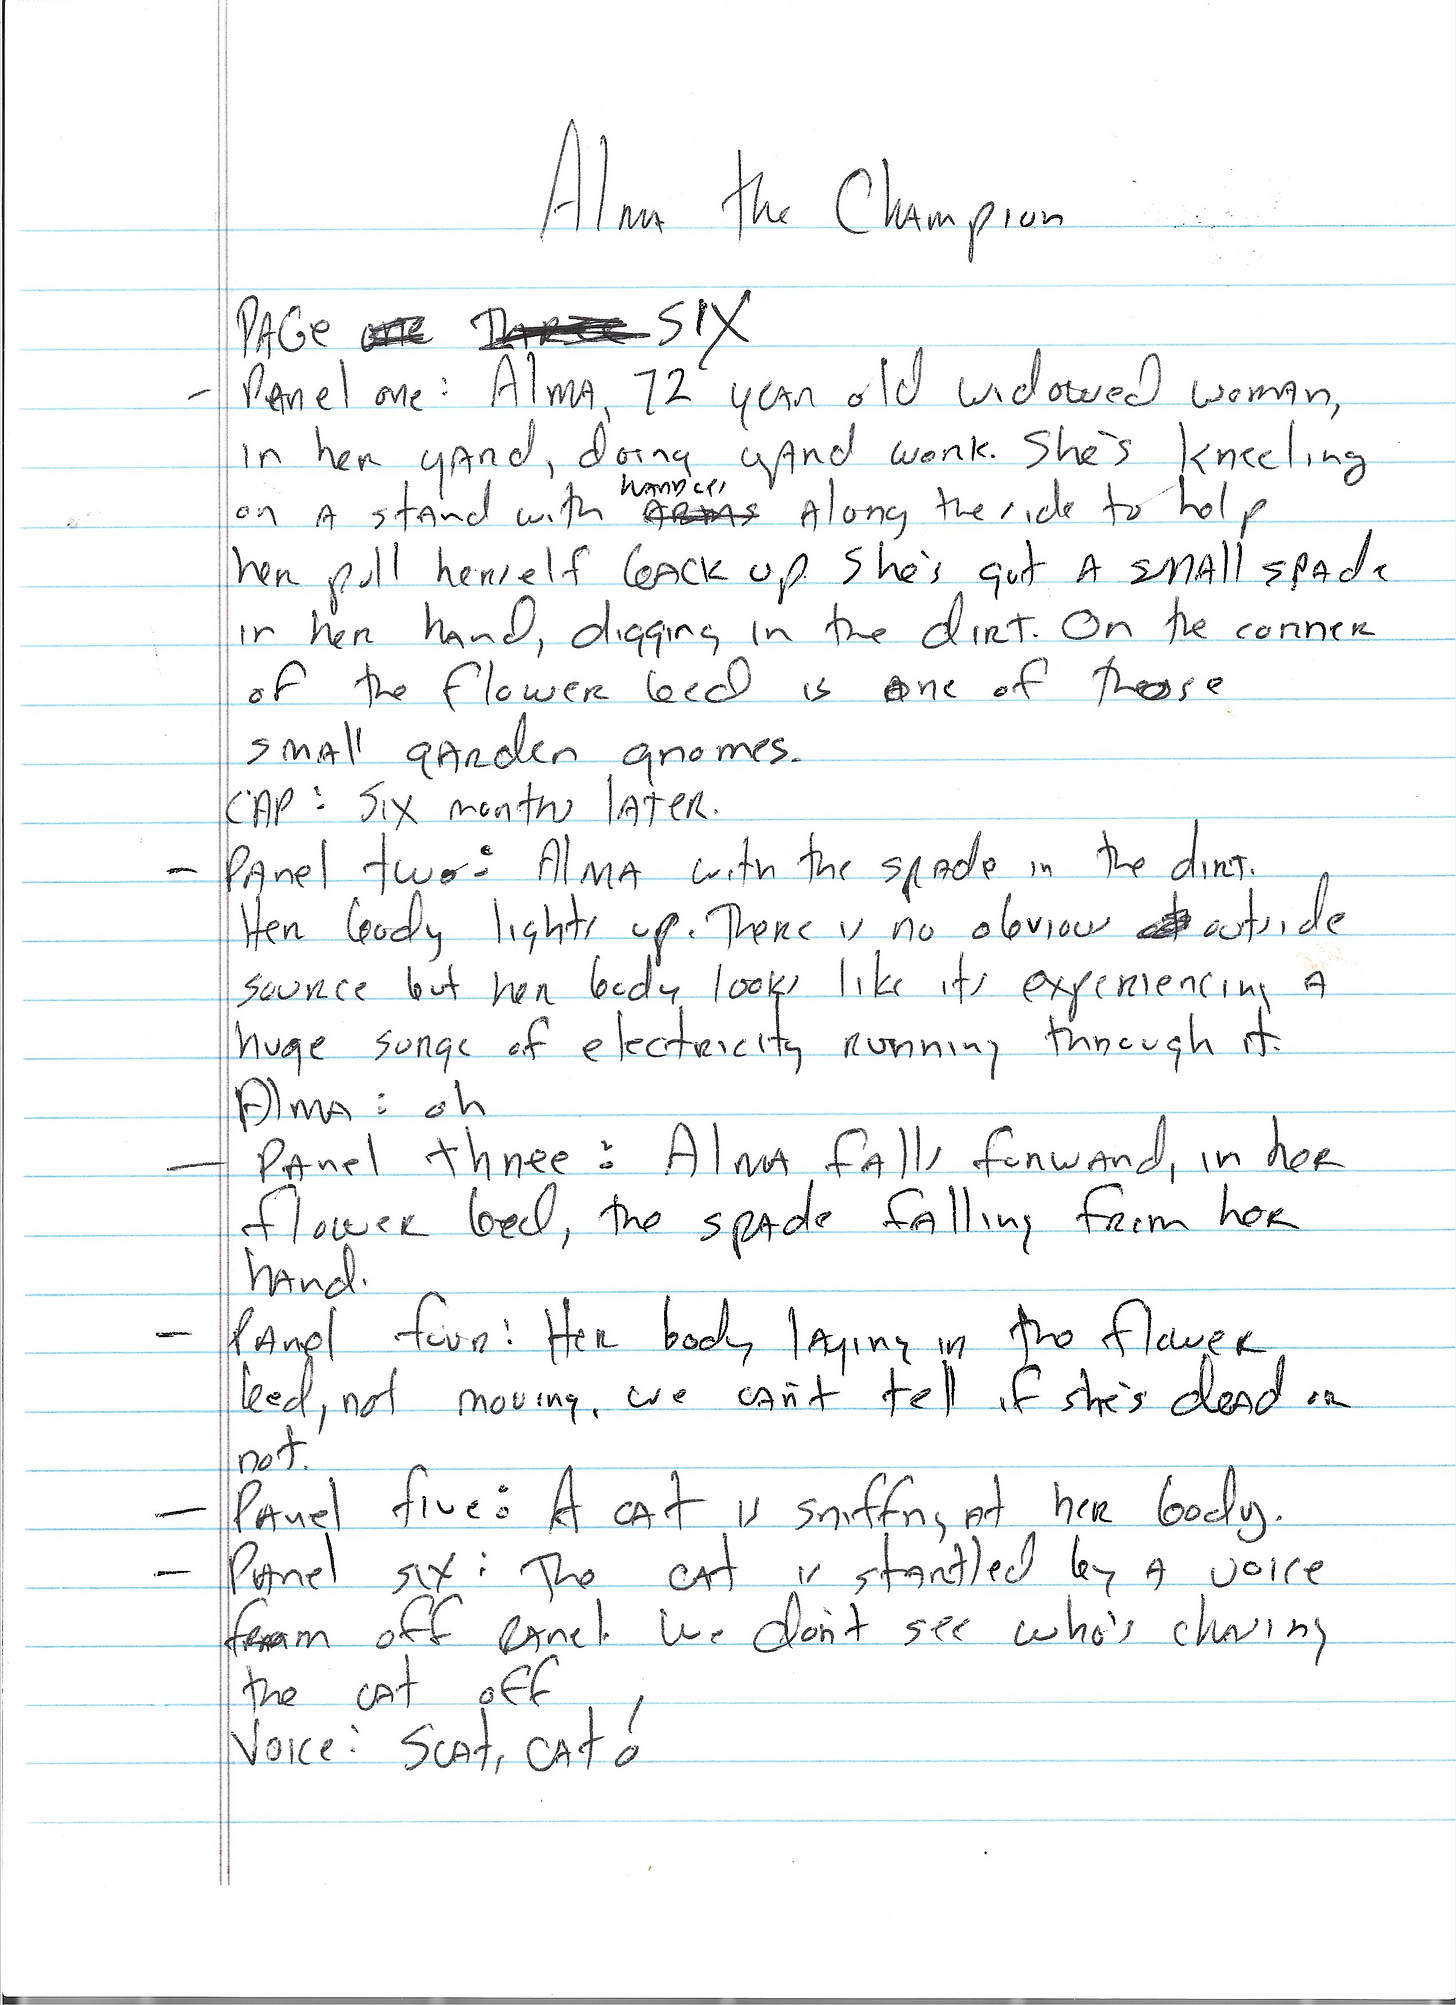 Alma the Champion
PAGE one Three SIX
- Panel one: Alma, 72 year old widowed woman,
in her yard, doing yard work. She's kneeling
handles
on a stand with arms along the side to help
her pull herself back up. She's got a small spade
in her hand, digging in the dirt. On the corner
of the flower bed is one of those
small garden gnomes.
CAP: Six months later.
- Panel two: Alma with the spade in the dirt.
Her body lights up. There is no obvious outside
source but her body looks like its experiencing a
huge surge of electricity running through it.
Alma: oh
- Panel three: Alma falls forward, in her
flower bed, the spade falling from her
hand.
- Panel four: Her body laying in the flower
bed, not moving. We can't tell if she's dead or
not.
- Panel five: A cat is sniffing at her body.
- Panel six: The cat is startled by a voice
from off panel. We don't see who's chasing
the cat off
Voice: Scat, cat!